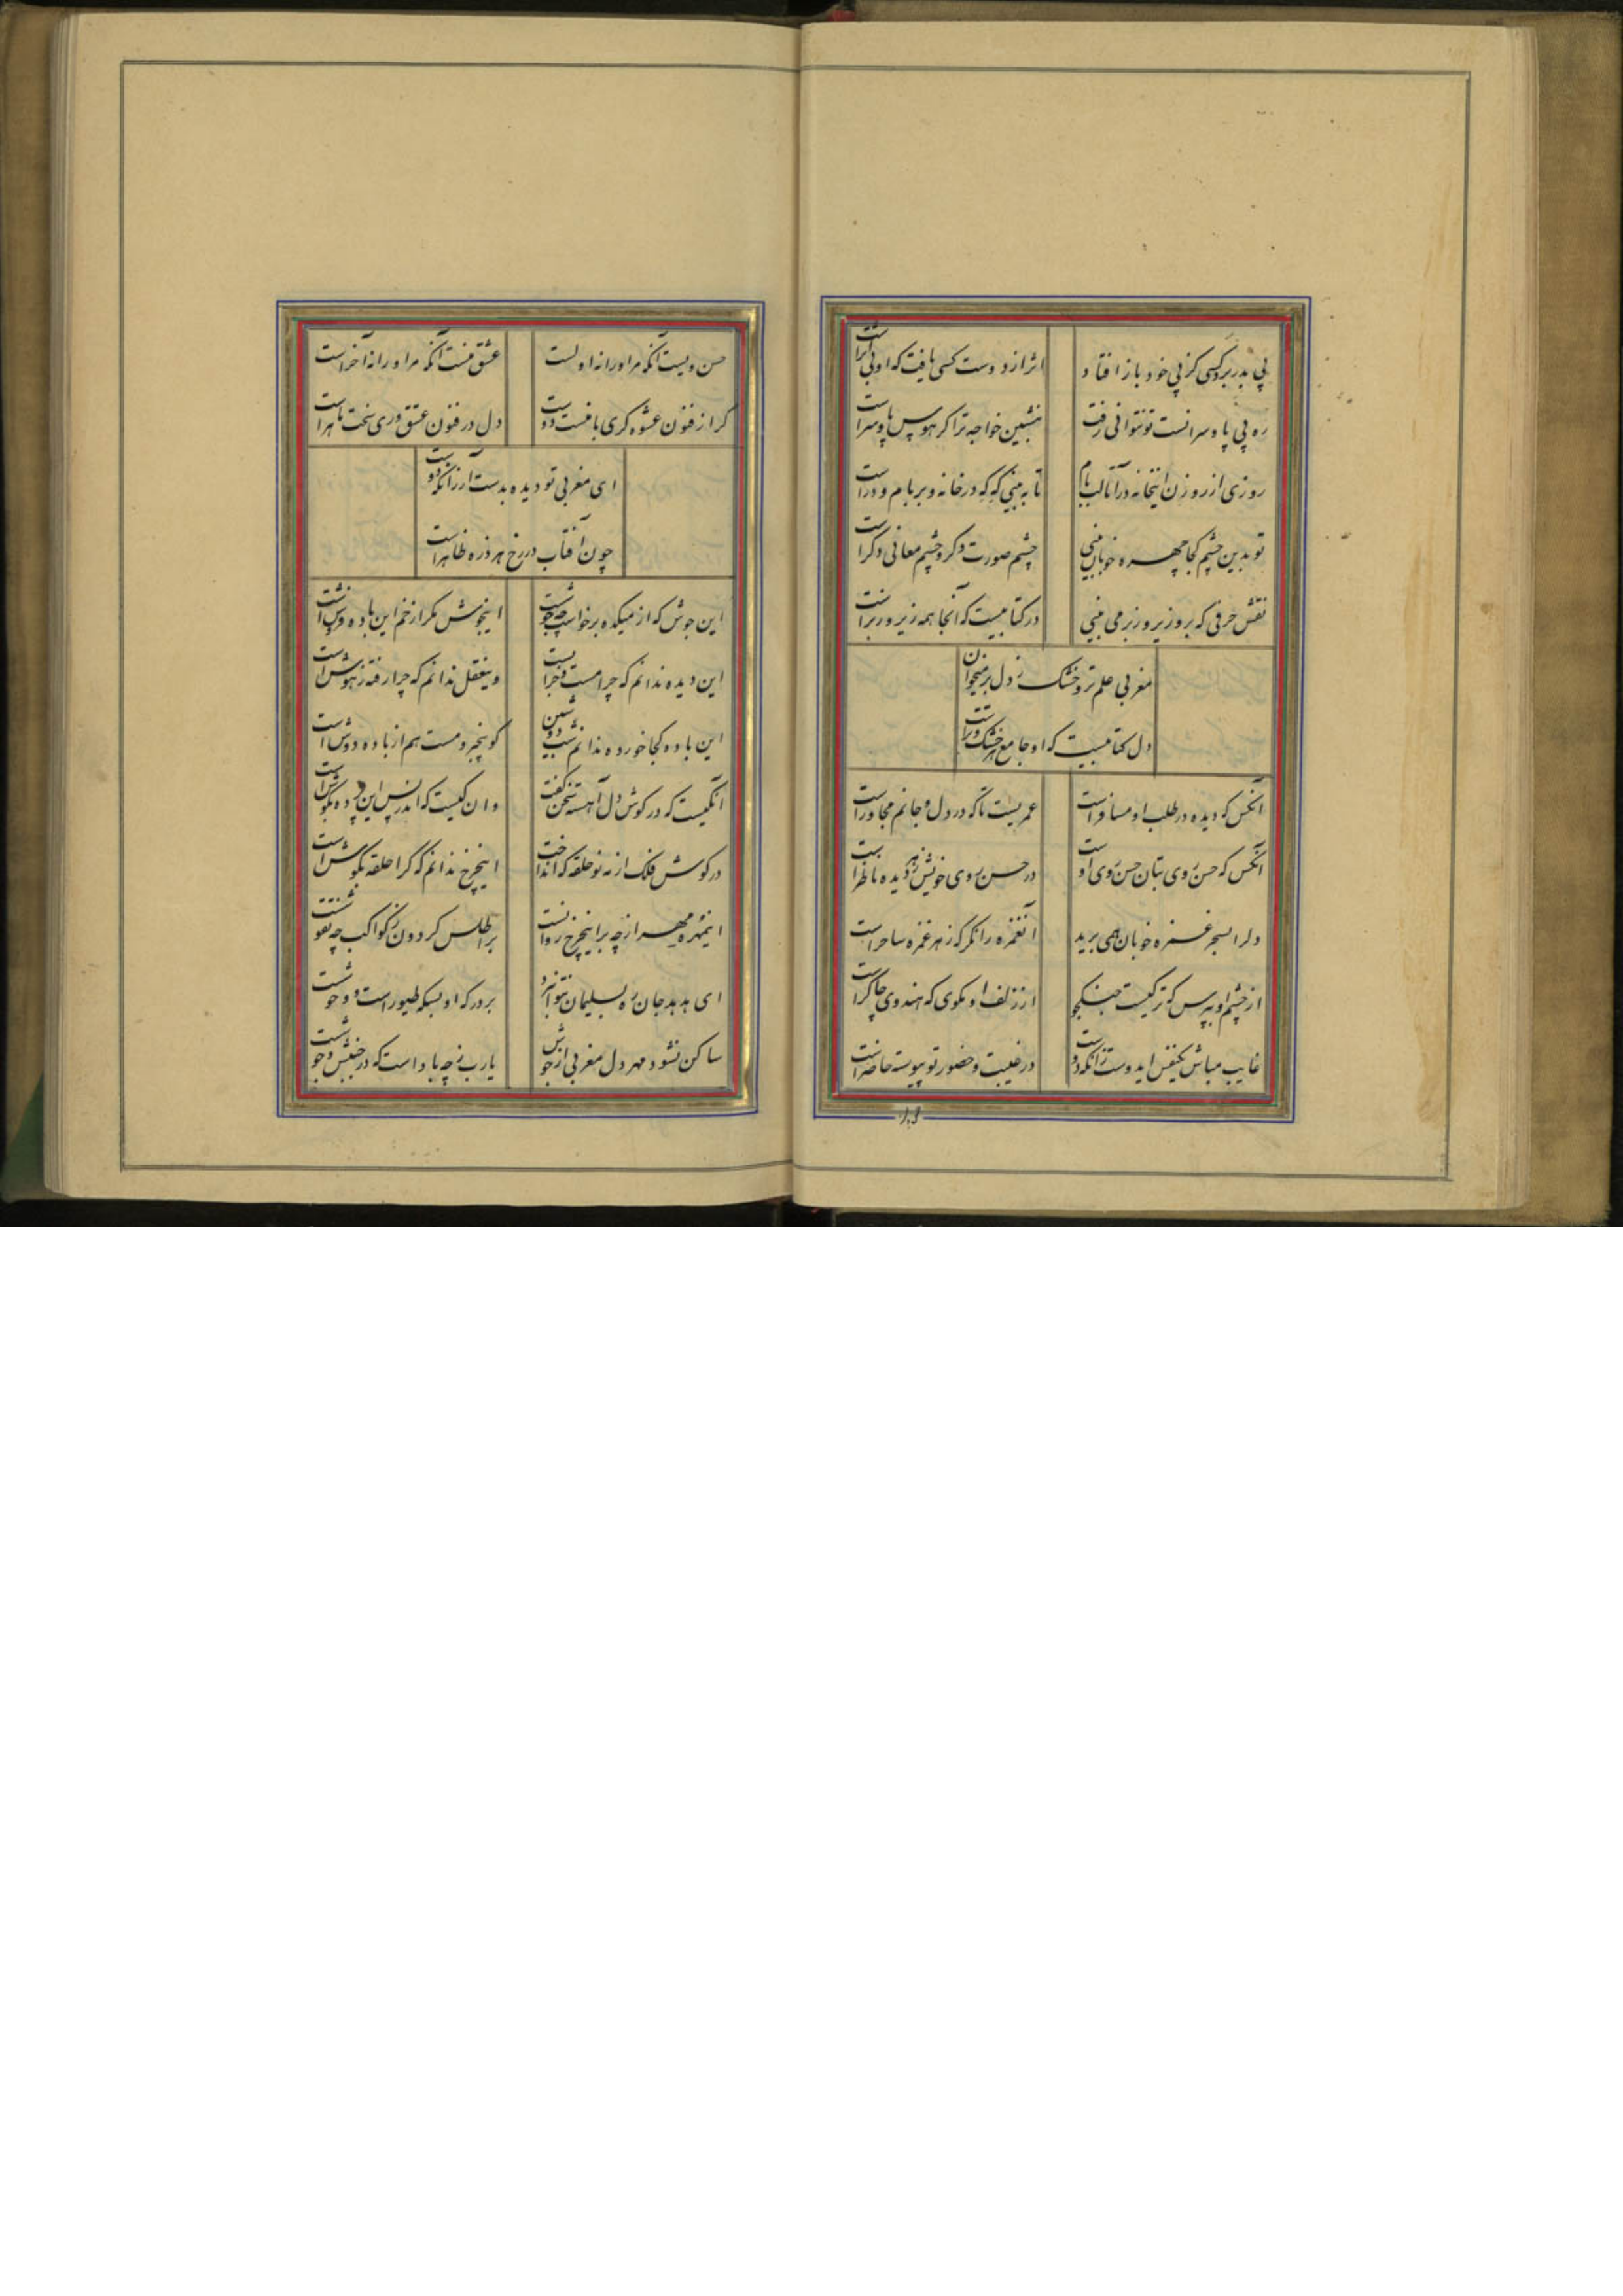 پی بدر برد کسی کز پی خود باز افتاد
اثر از دوست کسی یافت که او بی اثر است
ره بی پا و سرانست تو نتوانی رفت
بنشین خواجه ترا گر هوس پا و سر است
روزی از روزن اینخانه درآ تا لب بام
تا به بینی که که در خانه و بر بام و در است
تو بدین چشم کجا چهره خوبان بینی
چشم صورت دگر و چشم معانی دگر است
نقش حرفی که برو زیر و زبر می بینی
در کتابیست که آنجا همه زیر و زبر است
مغربی علم تر و خشک ز دل بر میخوان
دل کتابیست که او جامع هر خشک و تر است
آنکس که دیده در طلب او مسافر است
عمریست تا که در دل و جانم مجاور است
آنکس که حسن روی بتان حسن روی اوست
در حسن روی خویش ز هر دیده ناظر است
دلرا بسحر غمزه خوبان همی برید
آنغمزه را نگر که ز هر غمزه ساحر است
از چشم او بپرس که ترکیست جنگجو
از زلف او بگوی که هندوی چاکر است
غایب مباش یکنفس ایدوست زانکه دوست
در غیبت و حضور تو پیوسته حاضر است
حسن ویست آنکه مر او را نه اولست
عشق منست آنکه مر او را نه آخر است
گر از فنون عشوه گری با منست دوست
دل در فنون عشق وری سخت ماهر است
ای مغربی تو دیده بدست آر زانکه دوست
چون آفتاب در رخ هر ذره ظاهر است
این جوش که از میکده برخواست چه جوشست
اینجوش مگر از خم این باده فروش است
این دیده ندانم که چرا مست و خرابیست
وینعقل ندانم که چرا رفته ز هوش است
این باده کجا خورده ندانم شب دوشین
کو بیخبر و مست هم از باده دوش است
آنکیست که در گوش دل آهسته سخن گفت
وان کیست که اندر پس این پرده بگوش است
در گوش فلک از مه نو حلقه که انداخت
اینچرخ ندانم که کرا حلقه بگوش است
اینمهره مهر از چه بر اینچرخ روانست
بر اطلس گردون ز کواکب چه نقوشست
ای هدهد جان ره بسلیمان نتوان برد
بر درگه او بسکه طیور است و وحوشست
ساکن نشود مهر دل مغربی از جوش
یارب ز چه باد است که در جنبش و جوشست